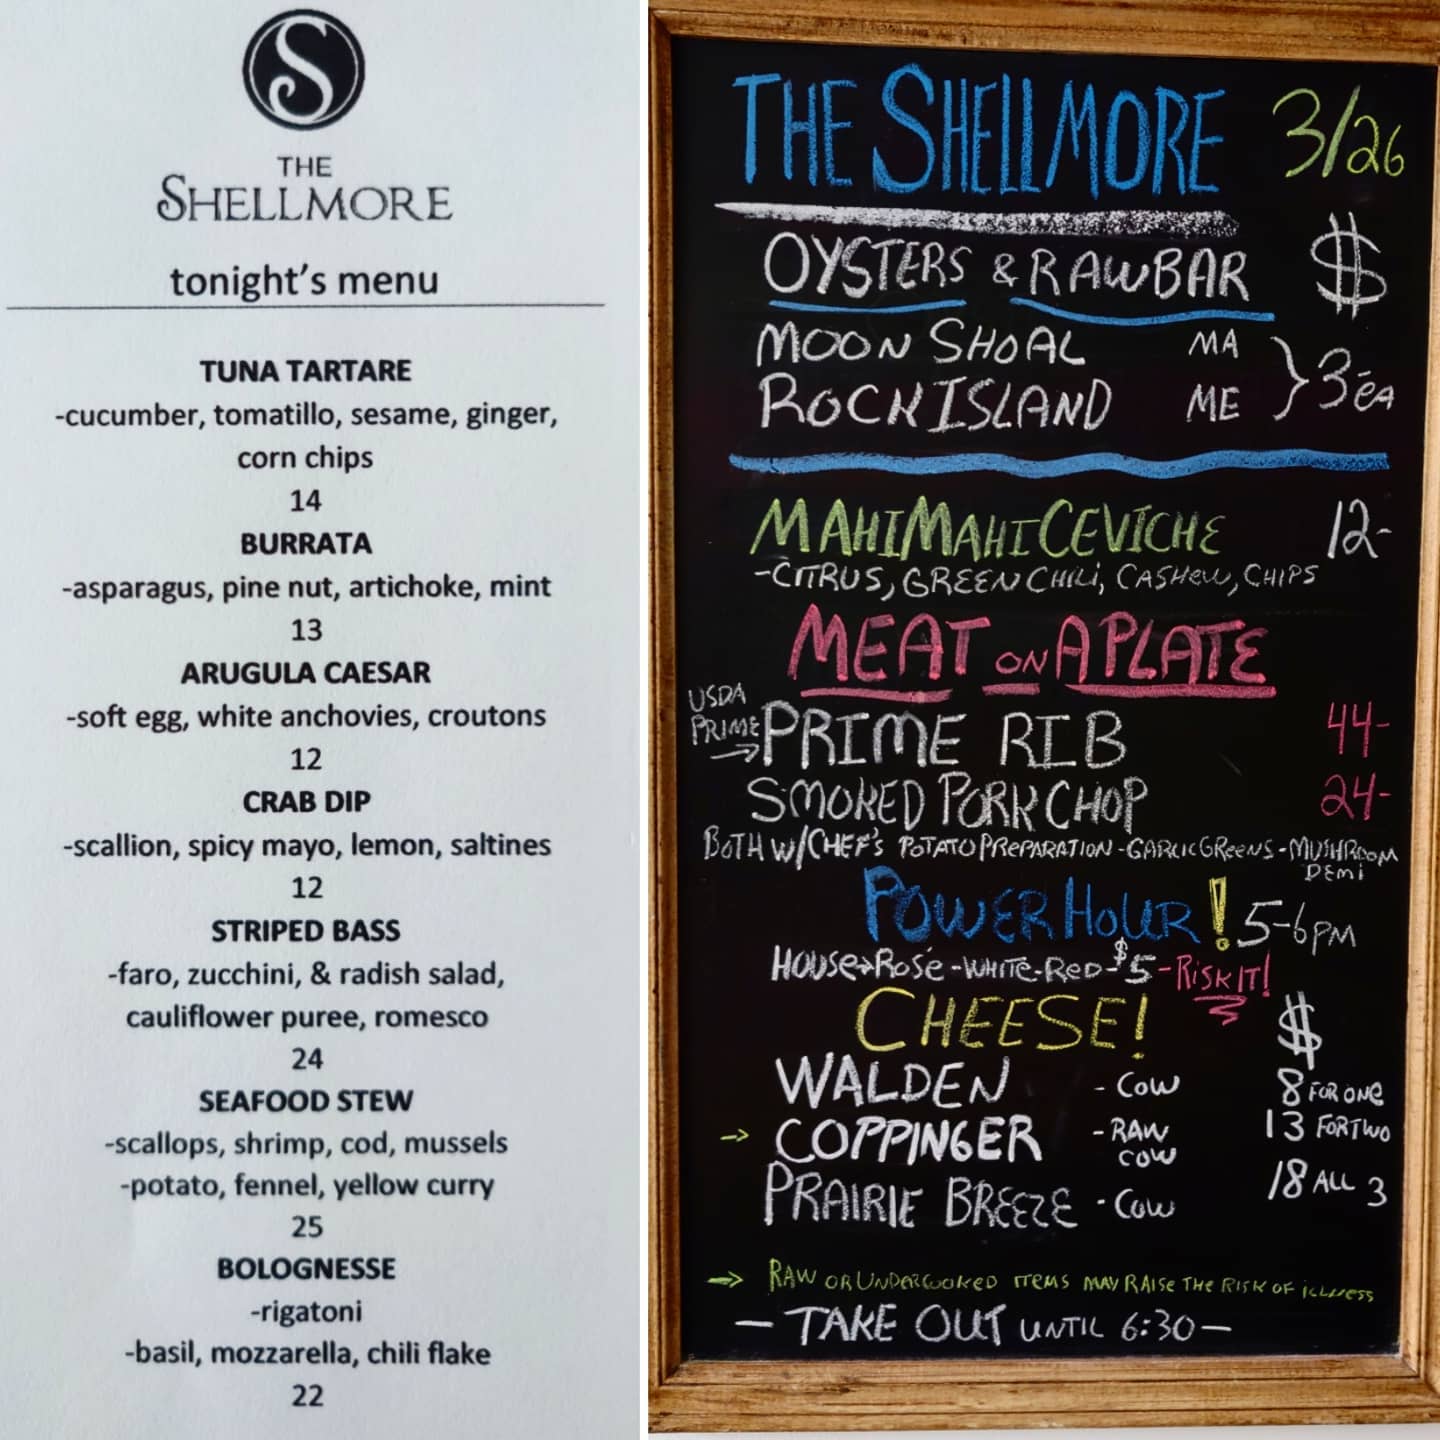 S
THE
SHELLMORE
tonight's menu
TUNA TARTARE
-cucumber, tomatillo, sesame, ginger,
corn chips
14
BURRATA
-asparagus, pine nut, artichoke, mint
13
ARUGULA CAESAR
-soft egg, white anchovies, croutons
12
CRAB DIP
-scallion, spicy mayo, lemon, saltines
12
STRIPED BASS
-faro, zucchini, & radish salad,
cauliflower puree, romesco
24
SEAFOOD STEW
-scallops, shrimp, cod, mussels
-potato, fennel, yellow curry
25
BOLOGNESSE
-rigatoni
-basil, mozzarella, chili flake
22
THE SHELLMORE 3/26
OYSTERS & RAWBAR $
MOON SHOAL MA
ROCK ISLAND ME } 3 ea
MAHI MAHI CEVICHE 12-
-CITRUS, GREEN CHILI, CASHEW, CHIPS
MEAT ON A PLATE
USDA
PRIME → PRIME RIB 44-
SMOKED PORK CHOP 24-
BOTH W/CHEF'S POTATO PREPARATION - GARLIC GREENS - MUSHROOM
DEMI
POWER HOUR! 5-6PM
HOUSE → ROSÉ - WHITE - RED - $5 - RISK IT!
CHEESE! $
WALDEN - COW 8 FOR ONE
→ COPPINGER - RAW COW 13 FOR TWO
PRAIRIE BREEZE - COW 18 ALL 3
→ RAW OR UNDERCOOKED ITEMS MAY RAISE THE RISK OF ILLNESS
- TAKE OUT UNTIL 6:30 -